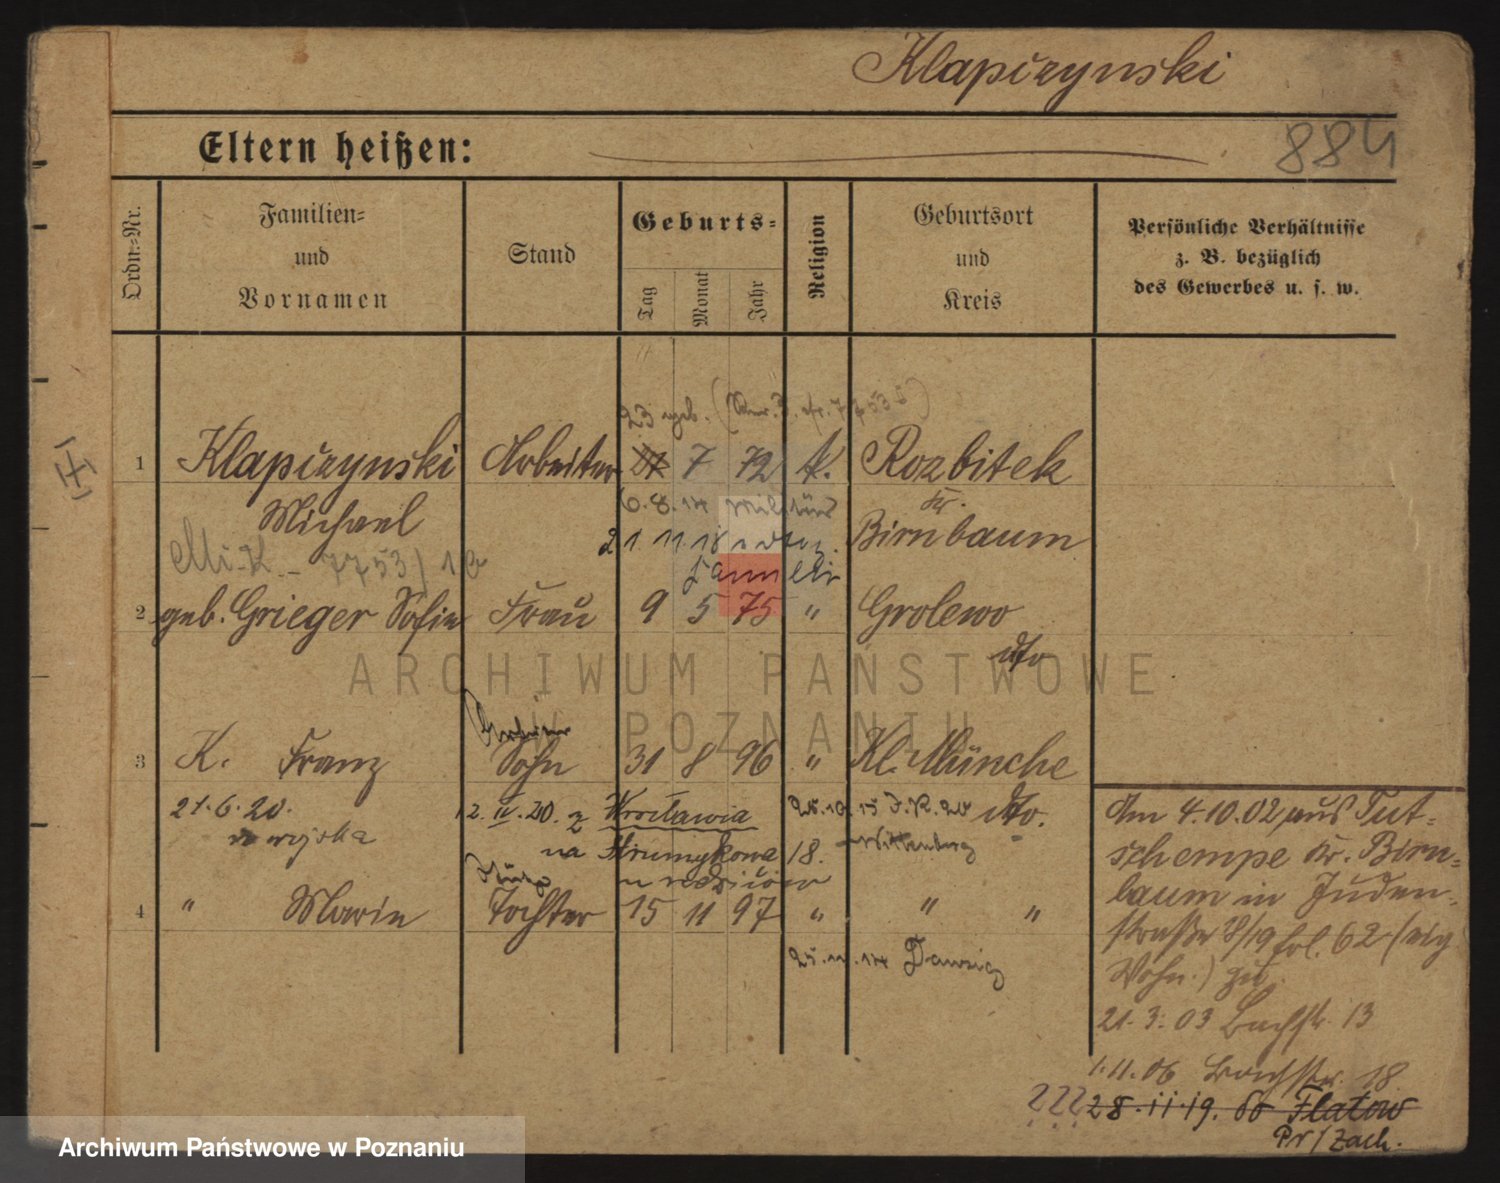 Klapczynski
Eltern heißen:
884
Ordn.=Nr.
Familien=
und
Vornamen
Stand
Geburts=
Tag
Monat
Jahr
Religion
Geburtsort
und
Kreis
Persönliche Verhältnisse
z. B. bezüglich
des Gewerbes u. s. w.
23 geb.
1 Klapczynski Arbeiter 7 72 k. Rozbitek
Michael
6.8.14 Militär
Kr.
21 11 18 Birnbaum
7753/16
Famili
2 geb. Grieger Sofie Frau 9 5 75 " Grolewo
dto
Arbeiter
3 K. Franz Sohn 31 8 96 " Kl. Münche
21.6.20.
w wojska
12. IV. 20. z Wrocławia
na Strumykowa 18.
dto.
Wittenberg
4 " Marie Tochter 15 11 97 " " "
Danzig
Am 4.10.02 aus Tut=
schempe Kr. Birn=
baum in Juden=
straße 18/19 fol. 62 (eig
Wohn.) zu.
21.3.03 Bachstr. 13
1.11.06 Bachstr. 18
???
28.11.19. do Flatow
Pr/Zach.
ARCHIWUM PAŃSTWOWE
W POZNANIU
Archiwum Państwowe w Poznaniu